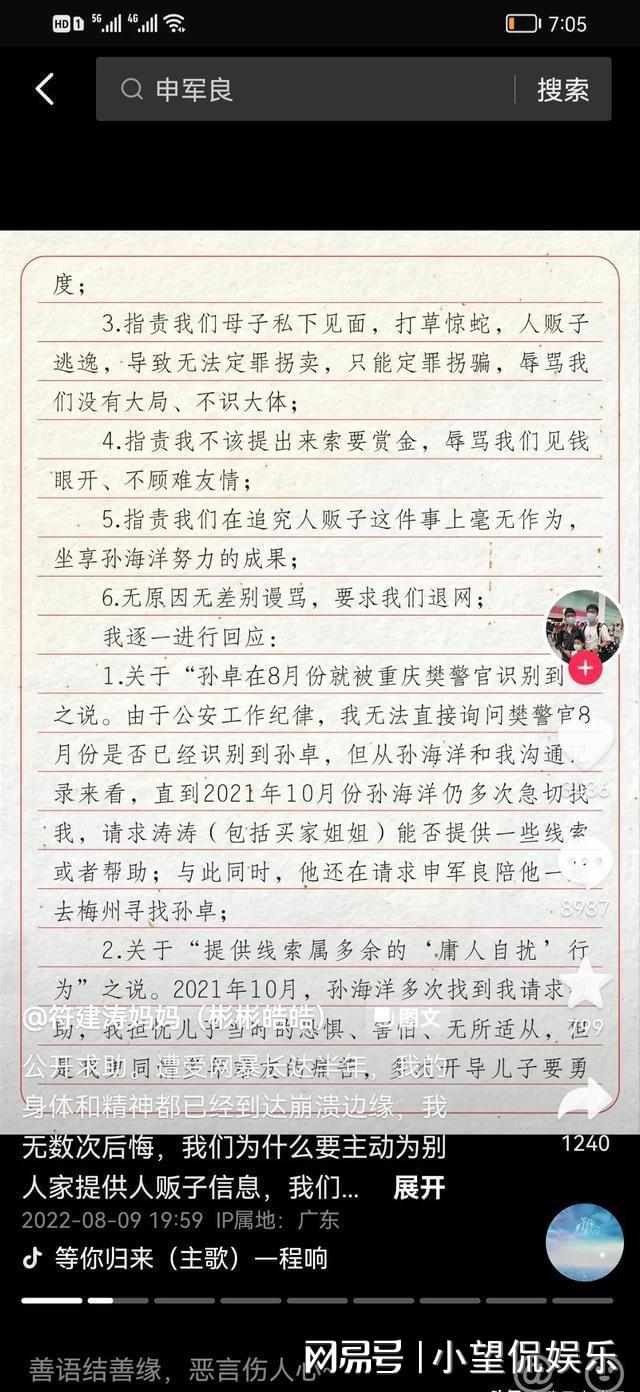 HD 1 5G 4G 7:05
申军良 搜索
度；
3.指责我们母子私下见面，打草惊蛇，人贩子
逃逸，导致无法定罪拐卖，只能定罪拐骗，辱骂我
们没有大局、不识大体；
4.指责我不该提出来索要赏金，辱骂我们见钱
眼开、不顾难友情；
5.指责我们在追究人贩子这件事上毫无作为，
坐享孙海洋努力的成果；
6.无原因无差别谩骂，要求我们退网；
我逐一进行回应：
1.关于“孙卓在8月份就被重庆樊警官识别到
之说。由于公安工作纪律，我无法直接询问樊警官8
月份是否已经识别到孙卓，但从孙海洋和我沟通记
录来看，直到2021年10月份孙海洋仍多次急切找
我，请求涛涛（包括买家姐姐）能否提供一些线索
或者帮助；与此同时，他还在请求申军良陪他一
去梅州寻找孙卓；
8987
2.关于“提供线索属多余的‘庸人自扰’行
为”之说。2021年10月，孙海洋多次找到我请求
助，我担忧儿子当时的恐惧、害怕、无所适从，但
是 同 痛苦，多次开导儿子要勇
@符建涛妈妈（彬彬皓皓） 图文
公开求助，遭受网暴长达半年，我的
身体和精神都已经到达崩溃边缘，我
无数次后悔，我们为什么要主动为别
人家提供人贩子信息，我们... 展开
1240
2022-08-09 19:59 IP属地：广东
等你归来（主歌）一程响
善语结善缘，恶言伤人心~
网易号 | 小望侃娱乐